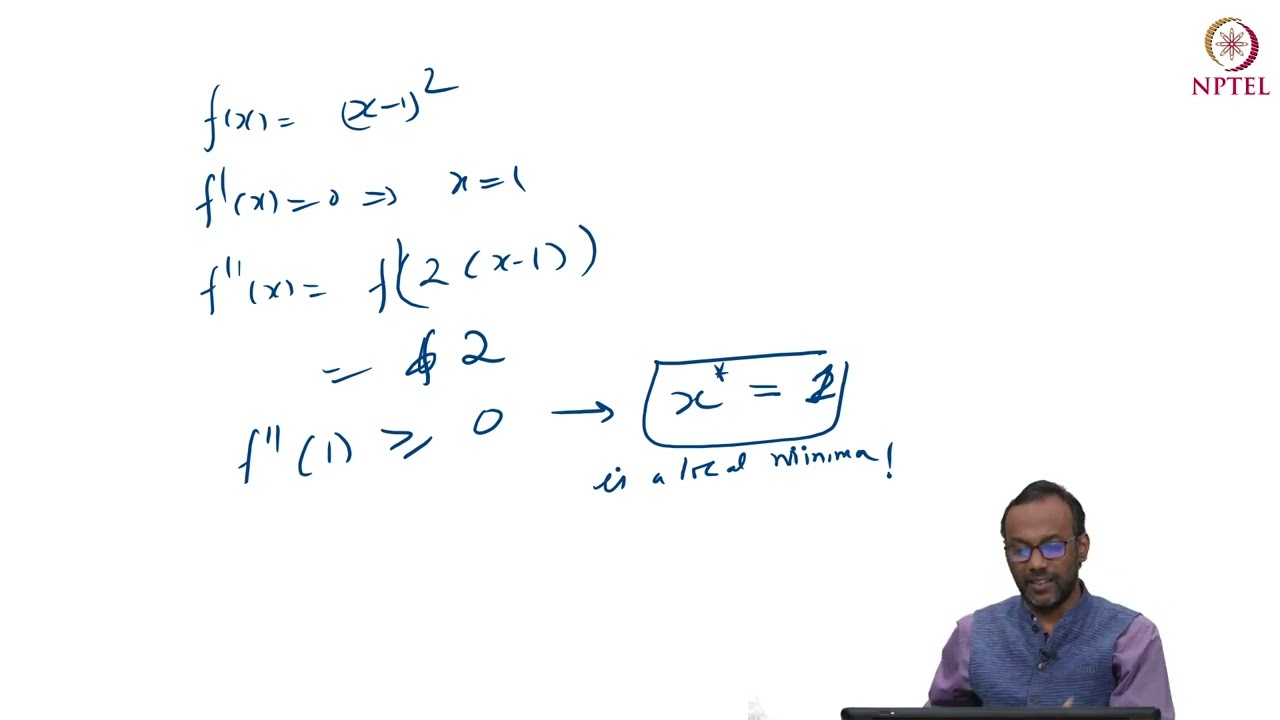 NPTEL
f(x) = (x-1)²
f'(x) = 0 => x = 1
f''(x) = f'(2(x-1))
= 2
f''(1) ≥ 0 → x* = 1
is a local minima!